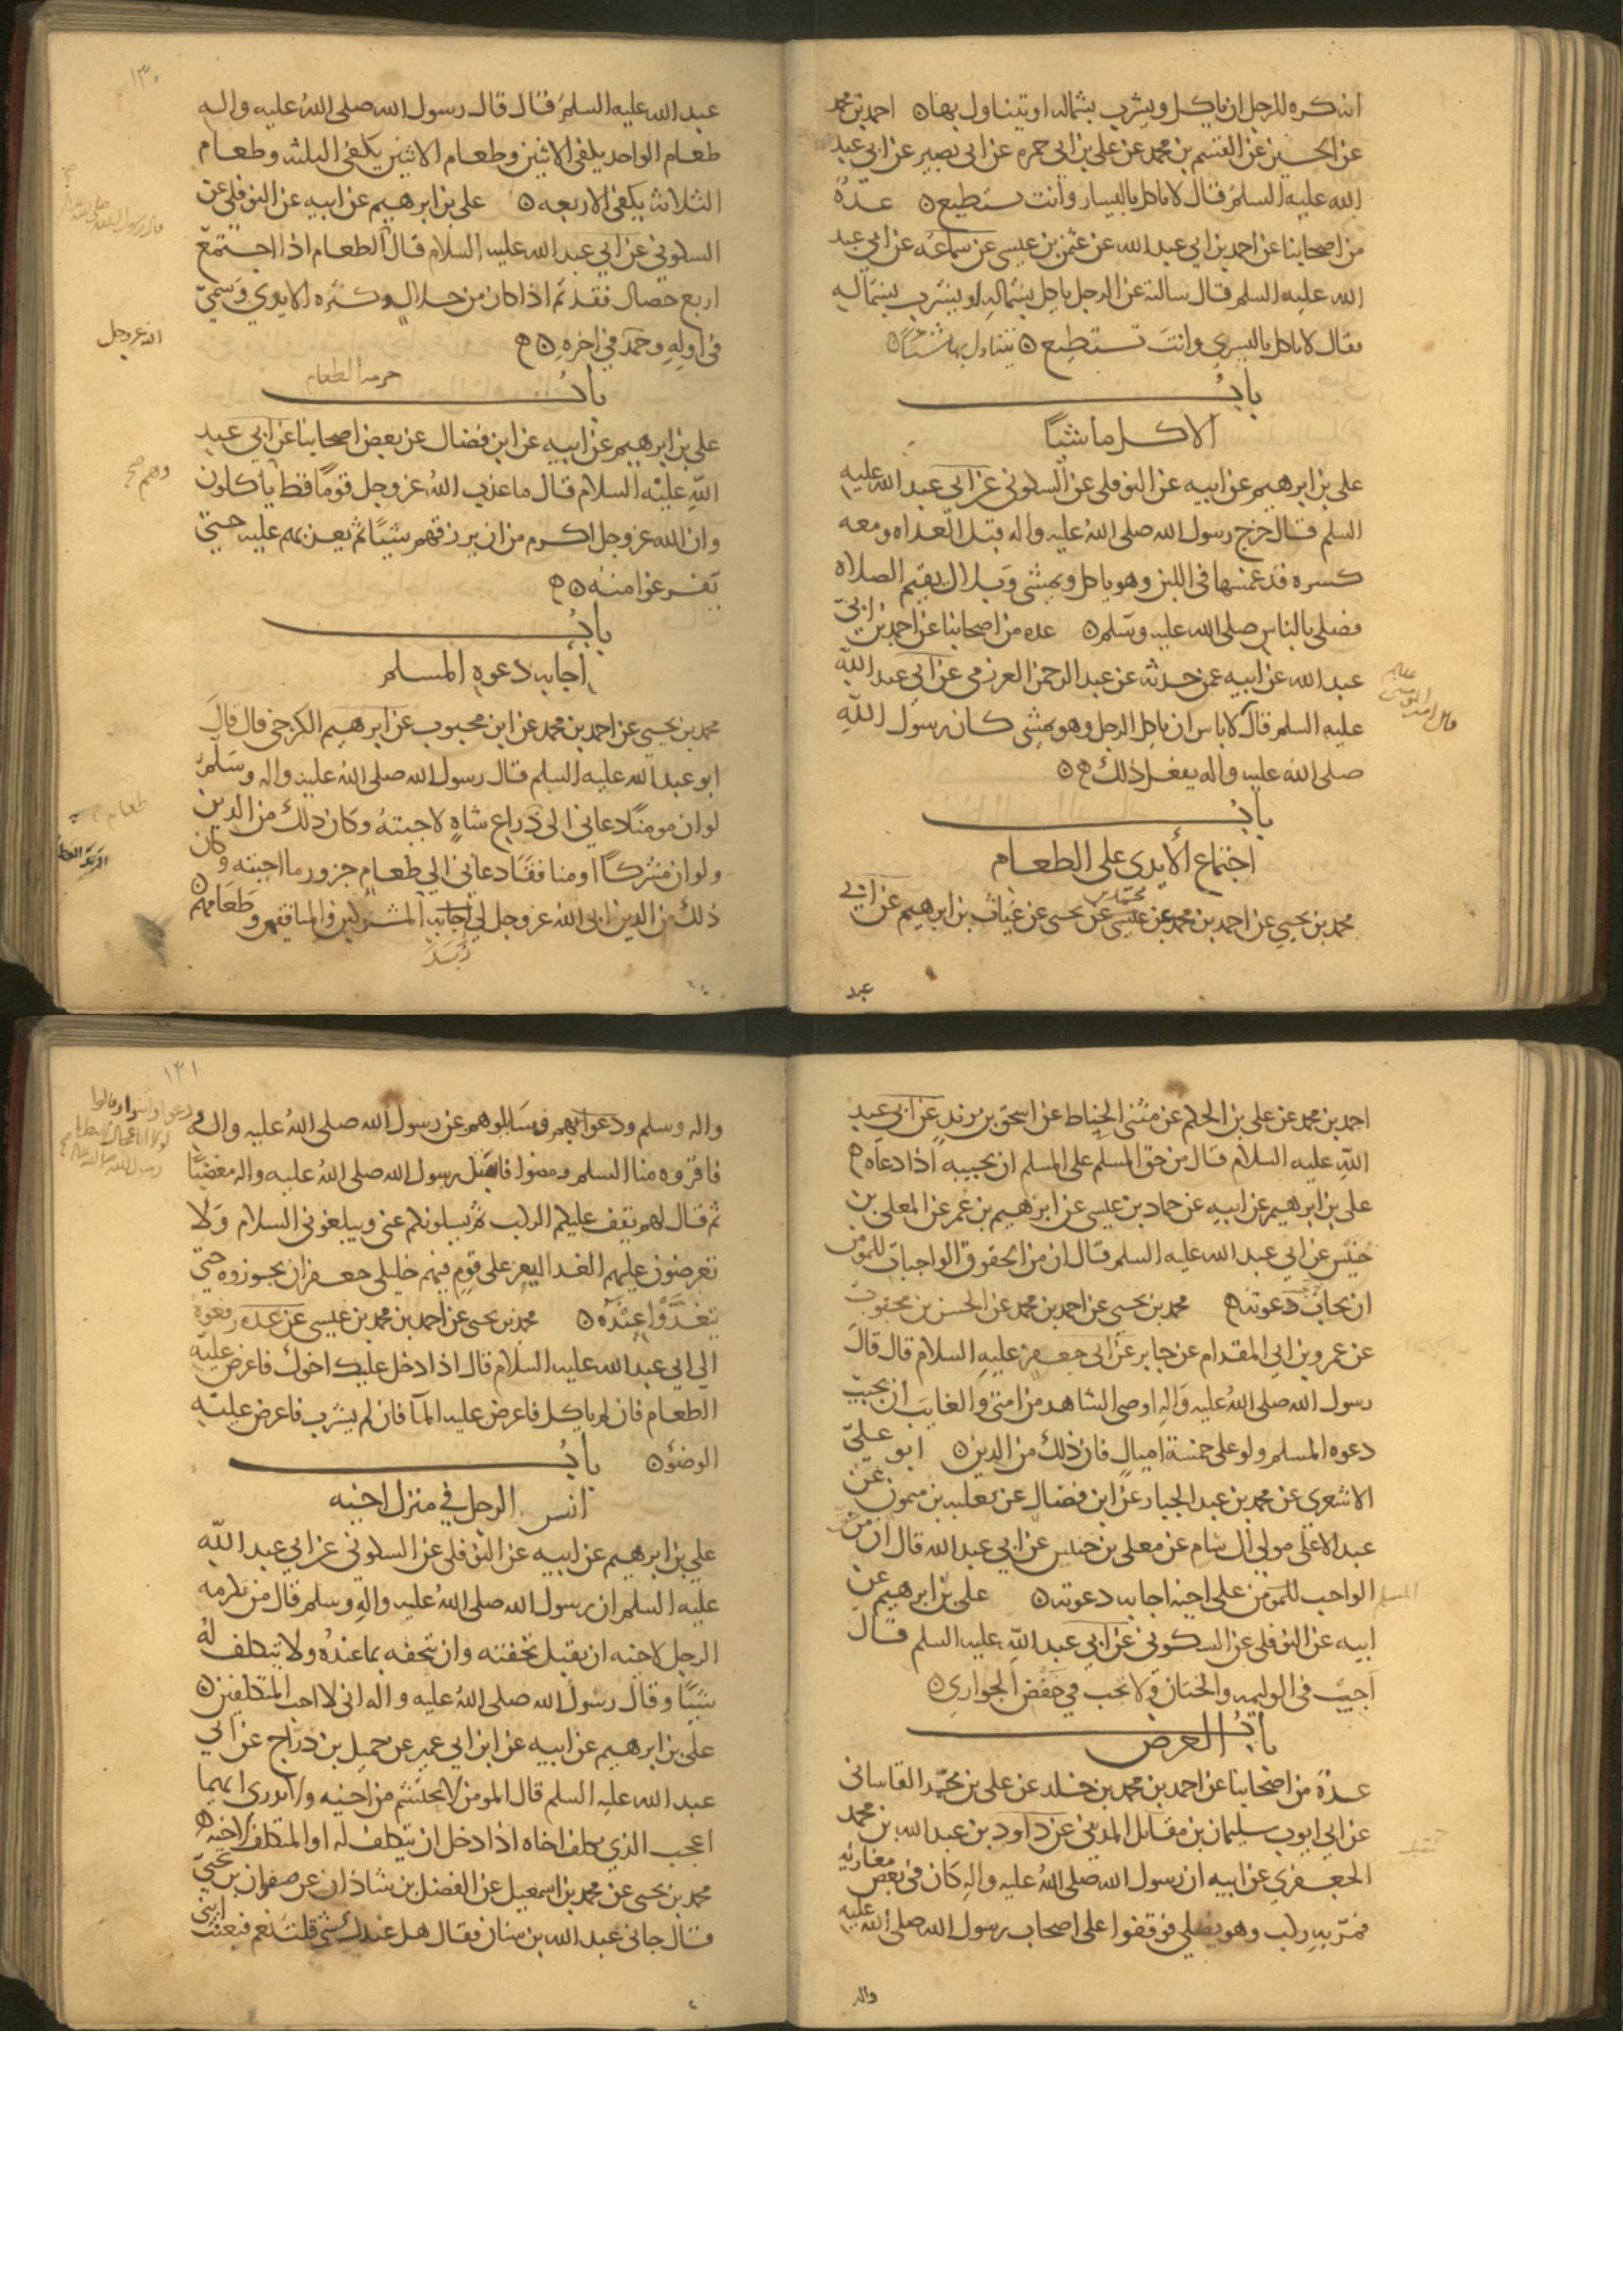 انه كره للرجل ان ياكل ويشرب بشماله او يتناول بها احمد بن محمد
عن الحسين عن القسم بن محمد عن علي بن ابي حمزه عن ابي بصير عن ابي عبد
الله عليه السلم قال لا تاكل باليسار وانت تستطيع عدة
من اصحابنا عن احمد بن ابي عبد الله عن عثمن بن عيسى عن سماعه عن ابي عبد
الله عليه السلم قال سالته عن الرجل ياكل بشماله او يشرب بشماله
فقال لا ياكل باليسرى وانت تستطيع يتناول بها شيئا
باب
الاكل ماشيا
علي بن ابرهيم عن ابيه عن النوفلي عن السكوني عن ابي عبد الله عليه
السلم قال خرج رسول الله صلى الله عليه واله قبل الغداه ومعه
كسره قد غمسها في اللبن وهو ياكل ويمشي وبلال يقيم الصلاه
فصلى بالناس صلى الله عليه وسلم عده من اصحابنا عن احمد بن ابي
عبد الله عن ابيه عمن حدثه عن عبد الرحمن العرزمي عن ابي عبد الله
عليه السلم قال لا باس ان ياكل الرجل وهو يمشي كان رسول الله
صلى الله عليه واله يفعل ذلك
باب
اجتماع الايدي على الطعام
محمد بن يحيى عن احمد بن محمد بن عيسى عن محمد بن يحيى عن غياث بن ابرهيم عن ابي
عبد
١٣٠
عبد الله عليه السلم قال قال رسول الله صلى الله عليه واله
طعام الواحد يكفي الاثنين وطعام الاثنين يكفي الثلثه وطعام
الثلاثه يكفي الاربعه علي بن ابرهيم عن ابيه عن النوفلي عن
السكوني عن ابي عبد الله عليه السلام قال الطعام اذا اجتمع
اربع خصال فقد تم اذا كان من حلال وكثره الايدي وسمي
في اوله وحمد في اخره
الله عز وجل
باب حرمه الطعام
علي بن ابرهيم عن ابيه عن ابن فضال عن بعض اصحابنا عن ابي عبد
الله عليه السلام قال ما عذب الله عز وجل قوما قط ياكلون
وهم صح
وان الله عز وجل اكرم من ان يرزقهم شيئا ثم يعذبهم عليه حتى
يفرغوا منه
باب
اجابه دعوه المسلم
محمد بن يحيى عن احمد بن محمد عن ابن محبوب عن ابرهيم الكرخي قال قال
ابو عبد الله عليه السلم قال رسول الله صلى الله عليه واله وسلم
لو ان مومنا دعاني الى ذراع شاه لاجبته وكان ذلك من الدين
ولو ان مشركا او منافقا دعاني الى طعام جزور ما اجبته وكان
ذلك من الدين ابى الله عز وجل لي اجابه المشركين والمنافقين وطعامهم
زبد
احمد بن محمد عن علي بن الحكم عن مثنى الحناط عن اسحق بن يزيد عن ابي عبد
الله عليه السلام قال من حق المسلم على المسلم ان يجيبه اذا دعاه
علي بن ابرهيم عن ابيه عن حماد بن عيسى عن ابرهيم بن عمر عن المعلى بن
خنيس عن ابي عبد الله عليه السلم قال ان من الحقوق الواجبات للمومن
ان يجاب دعوته محمد بن يحيى عن احمد بن محمد عن الحسن بن محبوب
عن عمرو بن ابي المقدام عن جابر عن ابي جعفر عليه السلام قال قال
رسول الله صلى الله عليه واله اوصي الشاهد من امتي والغايب ان يجيب
دعوه المسلم ولو على خمسة اميال فان ذلك من الدين ابو علي
الاشعري عن محمد بن عبد الجبار عن ابن فضال عن ثعلبه بن ميمون عن
عبد الاعلى مولى ال سام عن معلى بن خنيس عن ابي عبد الله قال ان من
الواجب للمومن على اخيه اجابه دعوته علي بن ابرهيم عن
المسلم
ابيه عن النوفلي عن السكوني عن ابي عبد الله عليه السلم قال
اجب في الوليمه والختان ولا تجب في خفض الجواري
باب العرض
عدة من اصحابنا عن احمد بن محمد بن خلد عن علي بن محمد القاساني
عن ابي ايوب سليمان بن مقاتل المديني عن داود بن عبد الله بن محمد
الجعفري عن ابيه ان رسول الله صلى الله عليه واله كان في بعض مغازيه
فمر به ركب وهو يصلي فوقفوا على اصحاب رسول الله صلى الله عليه
واله
١٣١
واله وسلم ودعوا لهم وسالوهم عن رسول الله صلى الله عليه واله
فاقروه منا السلم ومضوا فانفتل رسول الله صلى الله عليه واله مغضبا
ثم قال لهم يقف عليكم الركب ثم يسلونكم عني ويبلغوني السلام ولا
تعرضون عليهم الغدا ليعز على قوم فيهم خليلي جعفر ان يجوزوه حتى
يتغدوا عنده محمد بن يحيى عن احمد بن محمد بن عيسى عن عده رفعوه
الى ابي عبد الله عليه السلام قال اذا دخل عليك اخوك فاعرض عليه
الطعام فان لم ياكل فاعرض عليه الما فان لم يشرب فاعرض عليه
الوضؤ باب
انس الرجل في منزل اخيه
علي بن ابرهيم عن ابيه عن النوفلي عن السكوني عن ابي عبد الله
عليه السلم ان رسول الله صلى الله عليه واله وسلم قال من تكرمه
الرجل لاخيه ان يقبل تحفته وان يتحفه بما عنده ولا يتكلف له
شيئا وقال رسول الله صلى الله عليه واله اني لا احب المتكلفين
علي بن ابرهيم عن ابيه عن ابن ابي عمير عن جميل بن دراج عن ابي
عبد الله عليه السلم قال المومن لا يحتشم من اخيه ولا ادري ايهما
اعجب الذي يكلف اخاه اذا دخل ان يتكلف له او المتكلف لاخيه
محمد بن يحيى عن محمد بن اسمعيل عن الفضل بن شاذان عن صفوان بن يحيى
قال جاني عبد الله بن سنان فقال هل عندك شي قلت نعم فبعثت ابني